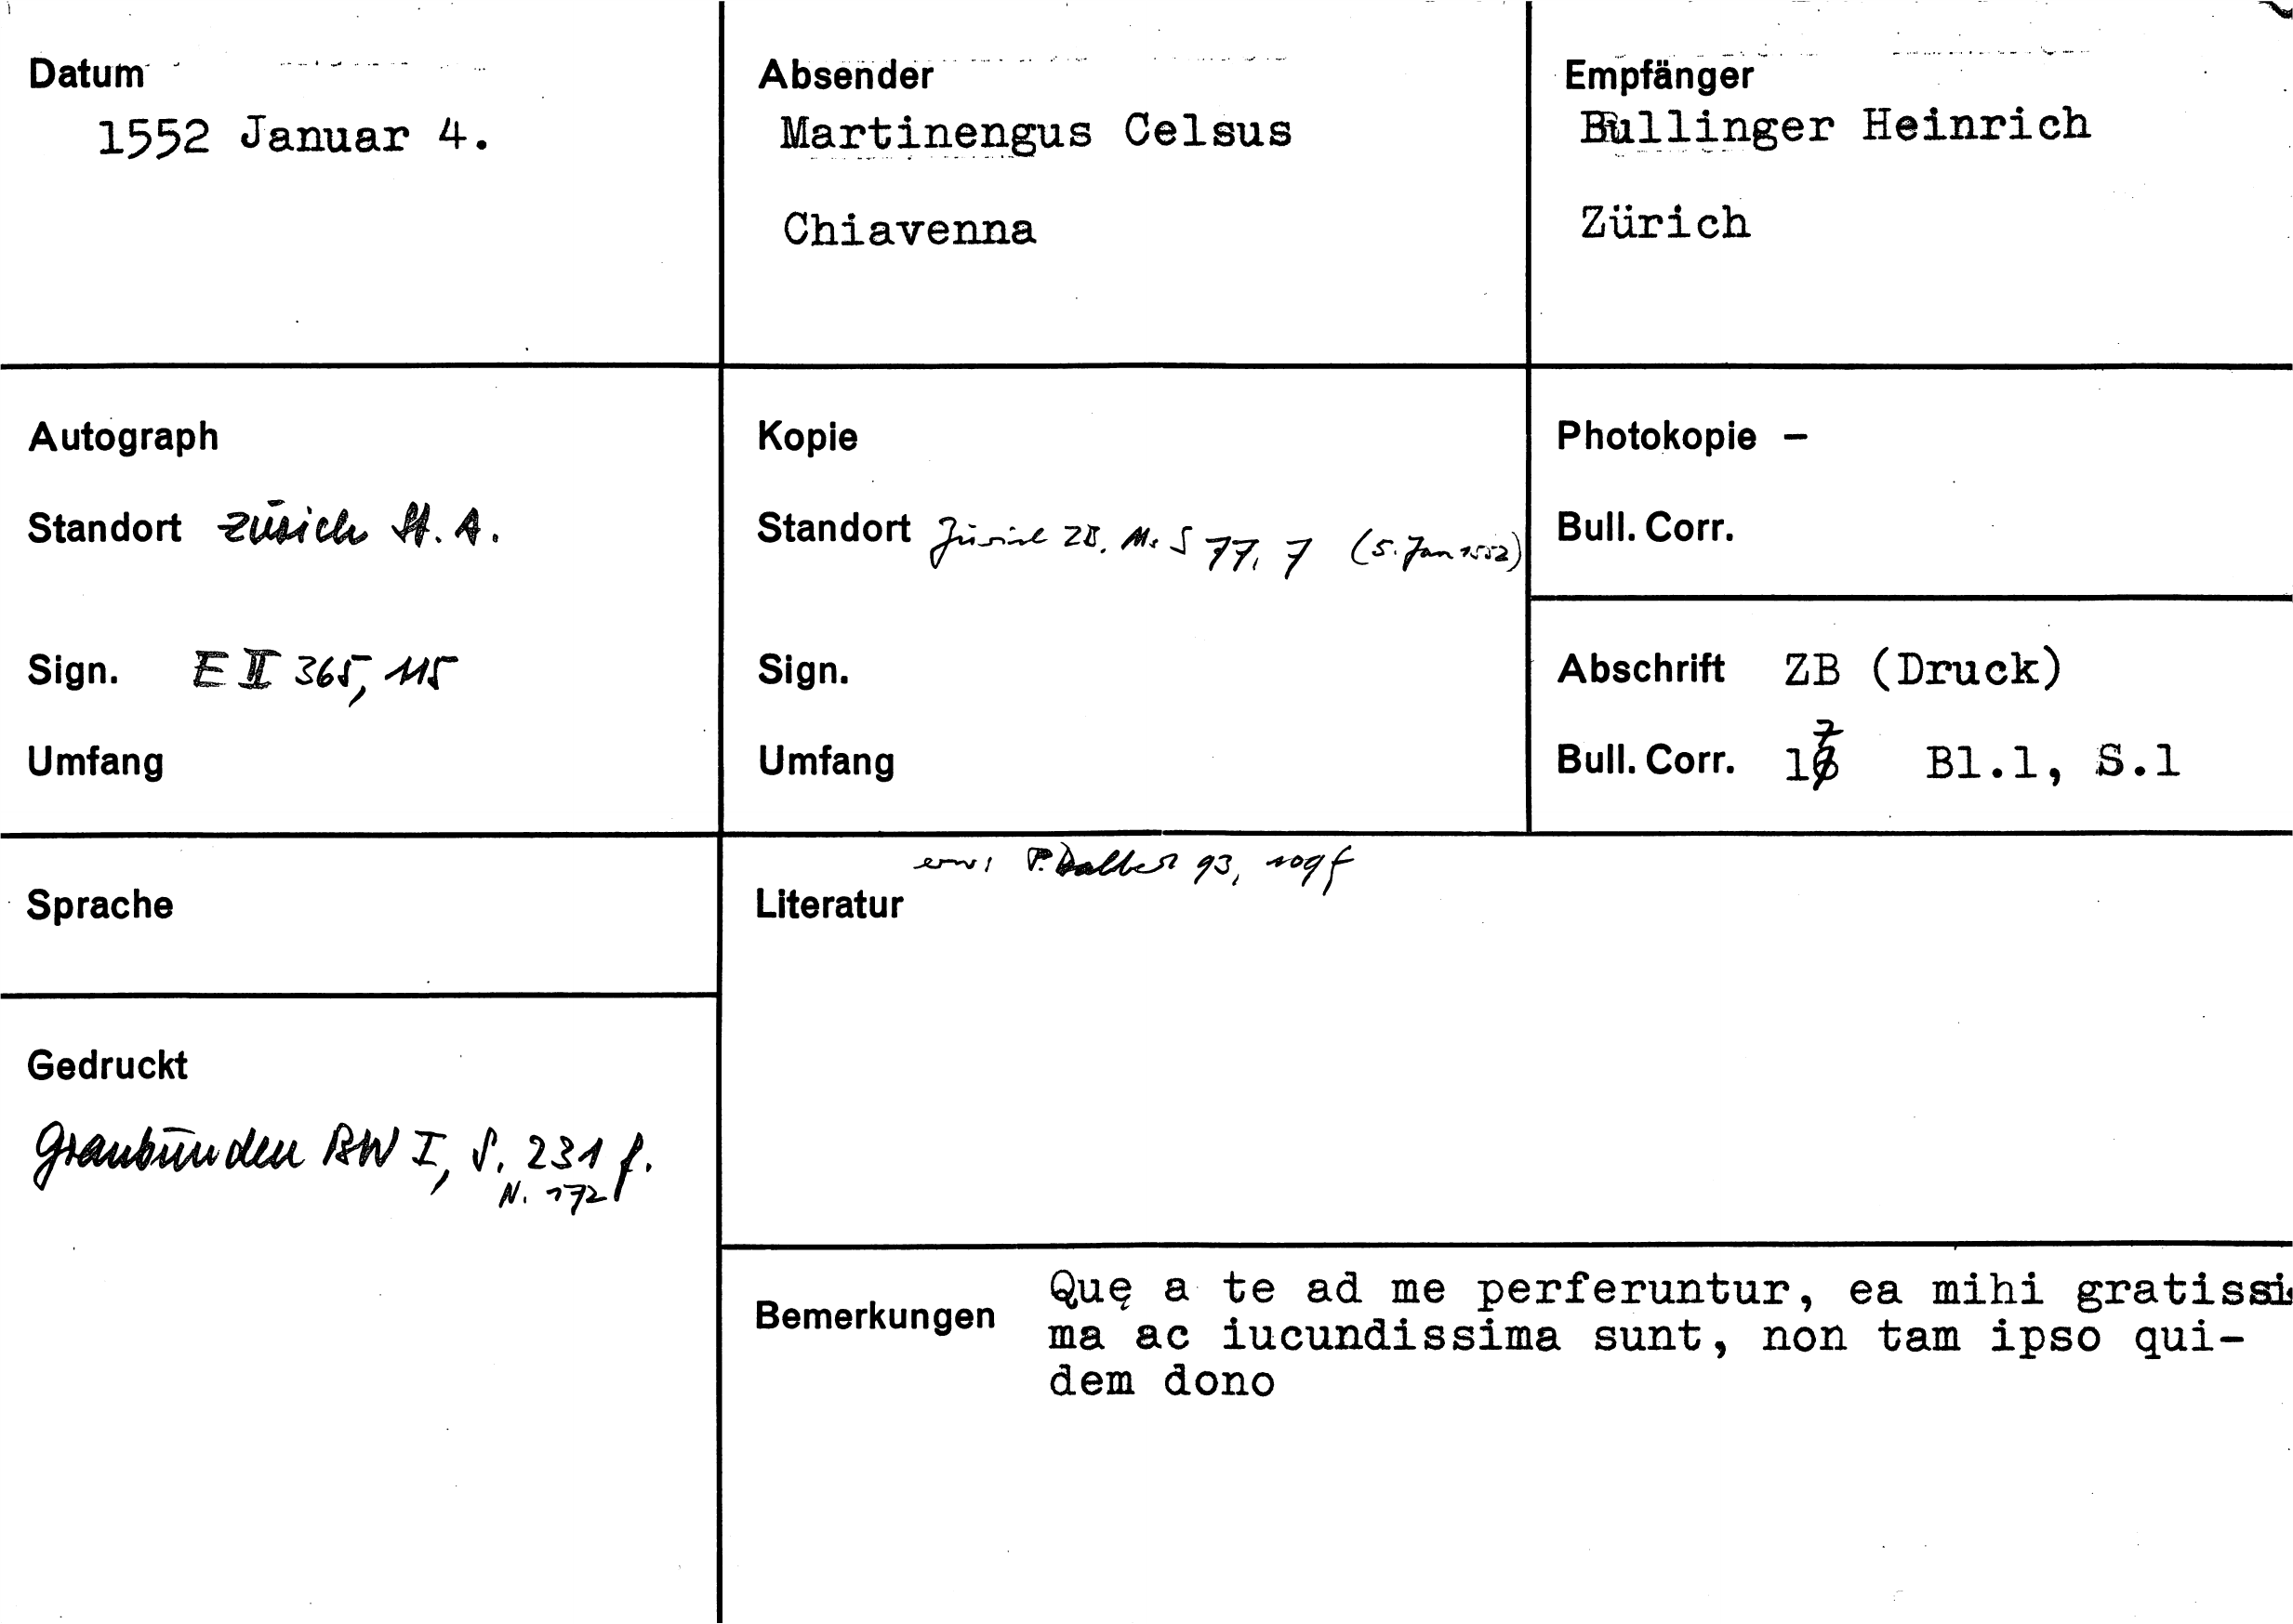 Datum
1552 Januar 4.
Absender
Martinengus Celsus
Chiavenna
Empfänger
Bullinger Heinrich
Zürich
Autograph
Standort Zürich St. A.
Sign. E II 365, 115
Umfang
Kopie
Standort Zürich ZB, Ms S 77, 7 (5. Jan 1552)
Sign.
Umfang
Photokopie –
Bull. Corr.
Abschrift ZB (Druck)
Bull. Corr. 17 Bl.1, S.1
Sprache
Gedruckt
Graubünden BW I, S. 231 f.
N. 172
93, 109 f
Literatur
Bemerkungen
Quę a te ad me perferuntur, ea mihi gratissi
ma ac iucundissima sunt, non tam ipso qui-
dem dono